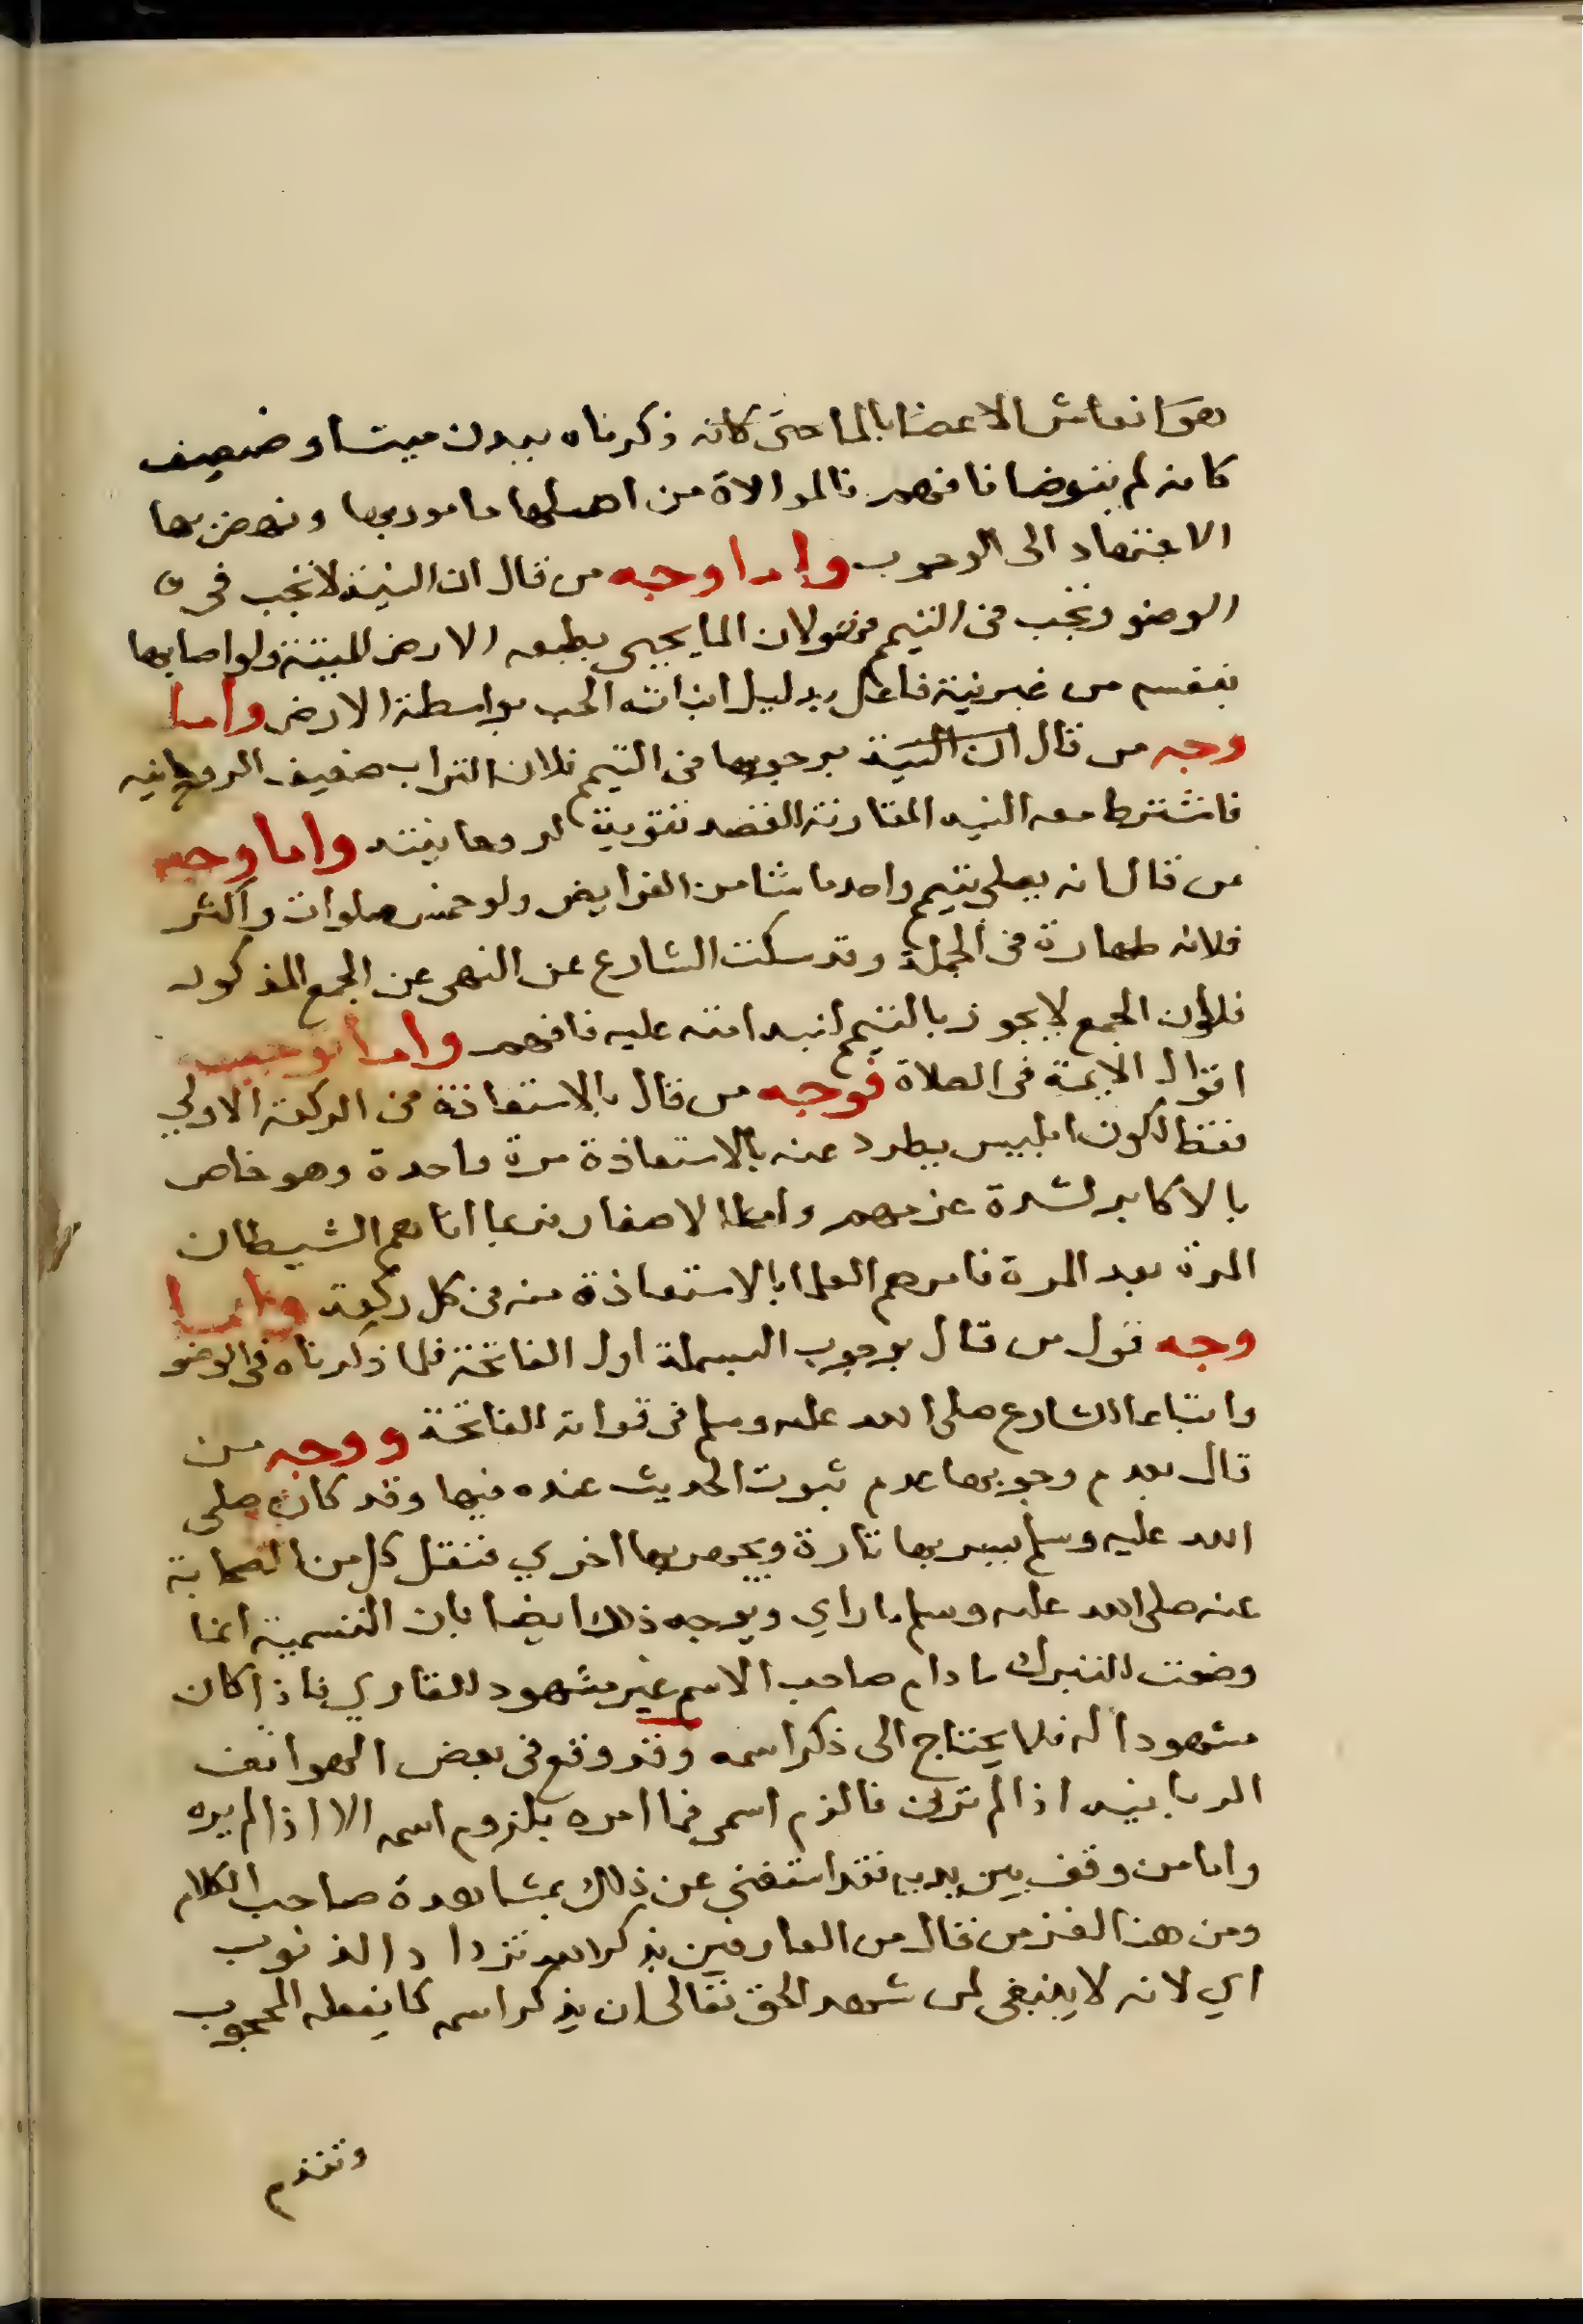 هو انعاش الاعضا بالما حتى كانه ذكرناه ببدن ميت او ضعيف
كانه لم يتوضا فافهم فالموالاة من اصلها مامور بها ونهض بها
الاجتهاد الى الوجوب واما وجه من قال ان النية لا تجب في
الوضو وتجب في التيمم فهو لان الما يحيى بطبعه الارض الميتة ولو اصابها
بنفسه من غير نية فاعل بدليل انباته الحب بواسطة الارض واما
وجه من قال ان النية بوجوبها في التيمم فلان التراب ضعيف الروحانيه
فاشترط معه النيه المقارنة للقصد تقوية لروحانيته واما وجه
من قال انه يصلى بتيمم واحد ما شا من الفرايض ولو خمس صلوات واكثر
فلانه طهارة في الجملة وقد سكت الشارع عن النهى عن الجمع المذكور
فلو ان الجمع لا يجوز بالتيمم لنبه امته عليه فافهم واما توجيه
اقوال الايمة في الصلاة فوجه من قال بالاستعاذة في الركعة الاولي
فقط لكون ابليس يطرد عنه بالاستعاذة مرة واحدة وهو خاص
بالاكابر لشدة عزمهم واما الاصاغر فربما اتاهم الشيطان
المرة بعد المرة فامرهم العلما بالاستعاذة منه في كل ركعة واما
وجه قول من قال بوجوب البسملة اول الفاتحة فلما ذكرناه في الوضو
واتباعا للشارع صلى الله عليه وسلم في قراته الفاتحة ووجه من
قال بعدم وجوبها عدم ثبوت الحديث عنده فيها وقد كان صلى
الله عليه وسلم يسر بها تارة ويجهر بها اخري فنقل كل من الصحابة
عنه صلى الله عليه وسلم ما راي ويوجه ذلك ايضا بان التسمية انما
وضعت للتبرك ما دام صاحب الاسم غير مشهود للقاري فاذا كان
مشهودا له فلا يحتاج الى ذكر اسمه وقد وقع في بعض الهواتف
الربانيه اذا لم ترنى فالزم اسمى فما امره بلزوم اسمه الا اذا لم يره
واما من وقف بين يديه فقد استغنى عن ذلك بمشاهدة صاحب الكلام
ومن هنا لغز من قال من العارفين بذكر الله تزداد الذنوب
اي لانه لا ينبغى لمن شهد الحق تعالى ان يذكر اسمه كما يفعله المحجوب
وتقدم